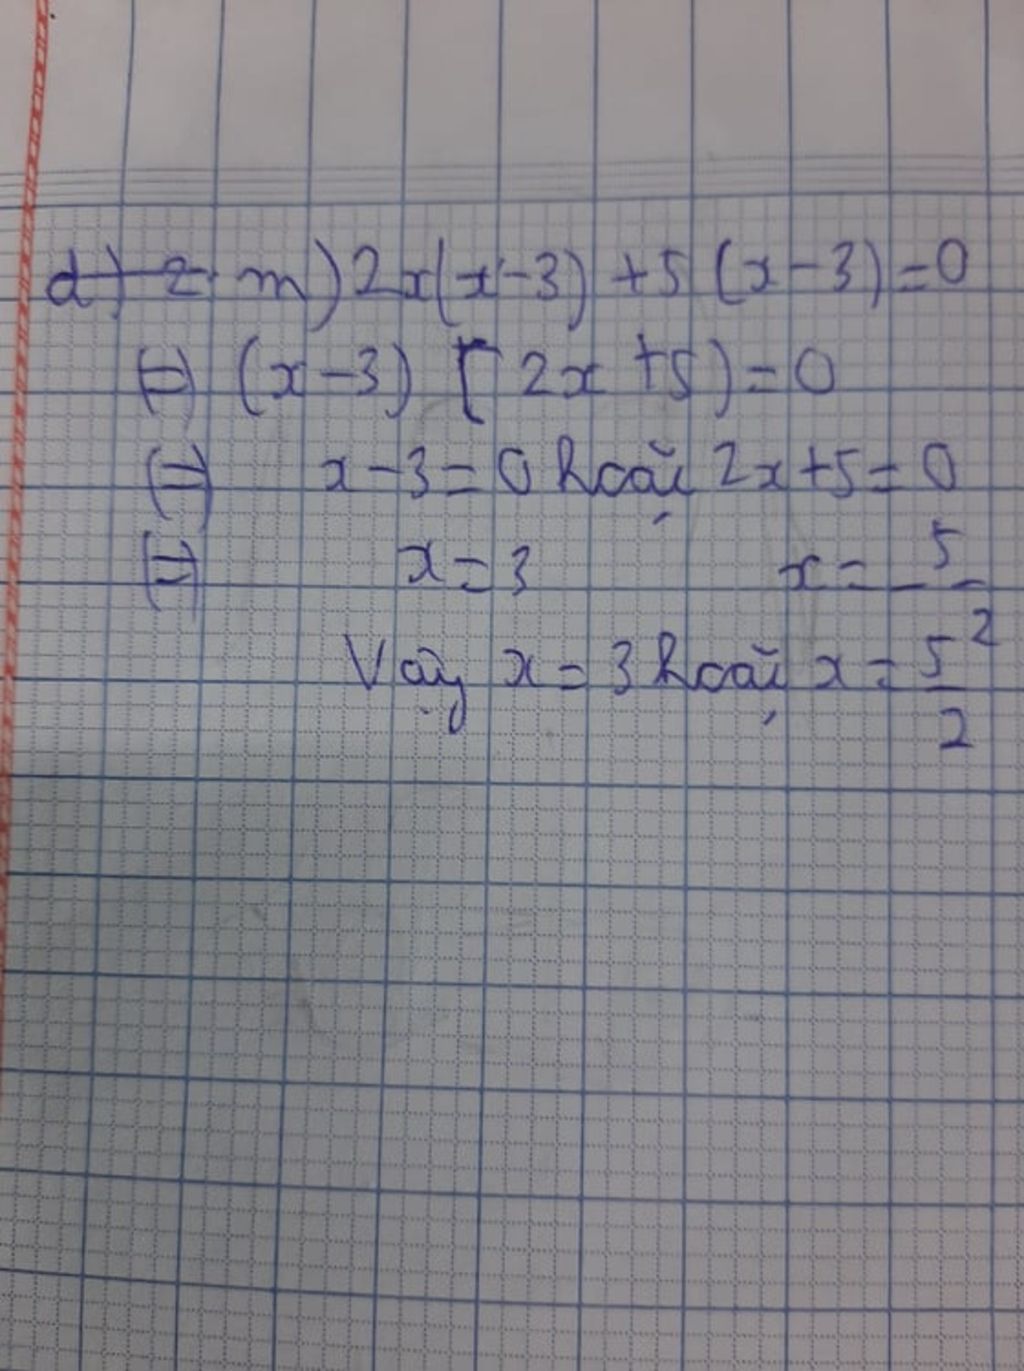 d) 2 m) 2x(x-3) +5 (x-3) =0
⇔ (x-3) [2x +5) = 0
⇔ x-3=0 hoặc 2x+5=0
⇔ x=3 x = -5/2
Vậy x = 3 hoặc x = 5/2